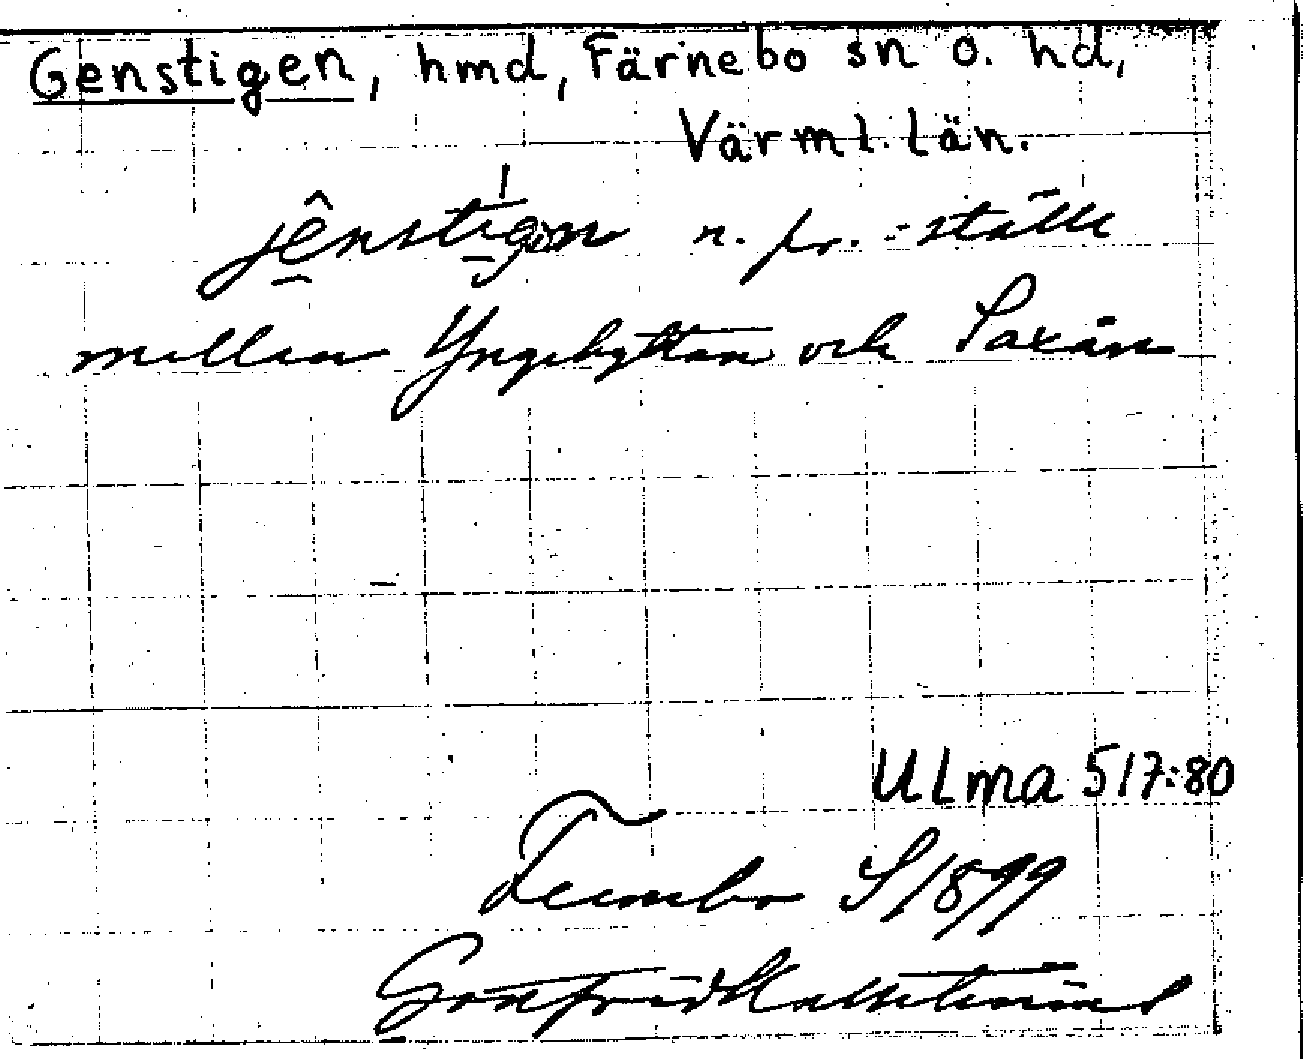 Genstigen, hmd, Färnebo sn o. hd,
Värml. län.
jênstigen n. pr. ställe
mellan Yngshyttan och Saxån
ULma 517:80
Fernebo S/1899
Gottfrid Kallstenius